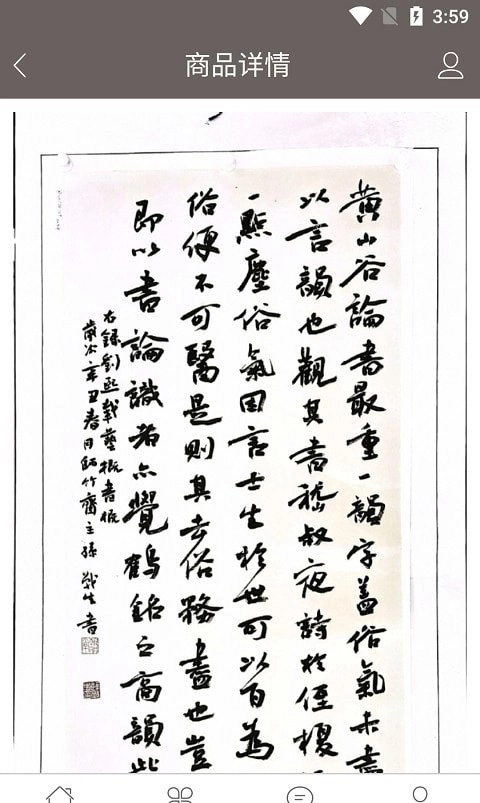 3:59
商品详情
黄山谷論書最重一韻字蓋俗氣未盡
以言韻也觀其書嵇叔夜詩於侄榎
一點塵俗氣因言士生於世可以百為
俗便不可醫是則其去俗務盡也豈
即以書論識者亦覺鶴銘之高韻此
右錄劉熙載藝概書概
歲次辛丑春月竹齋主孫戰生書